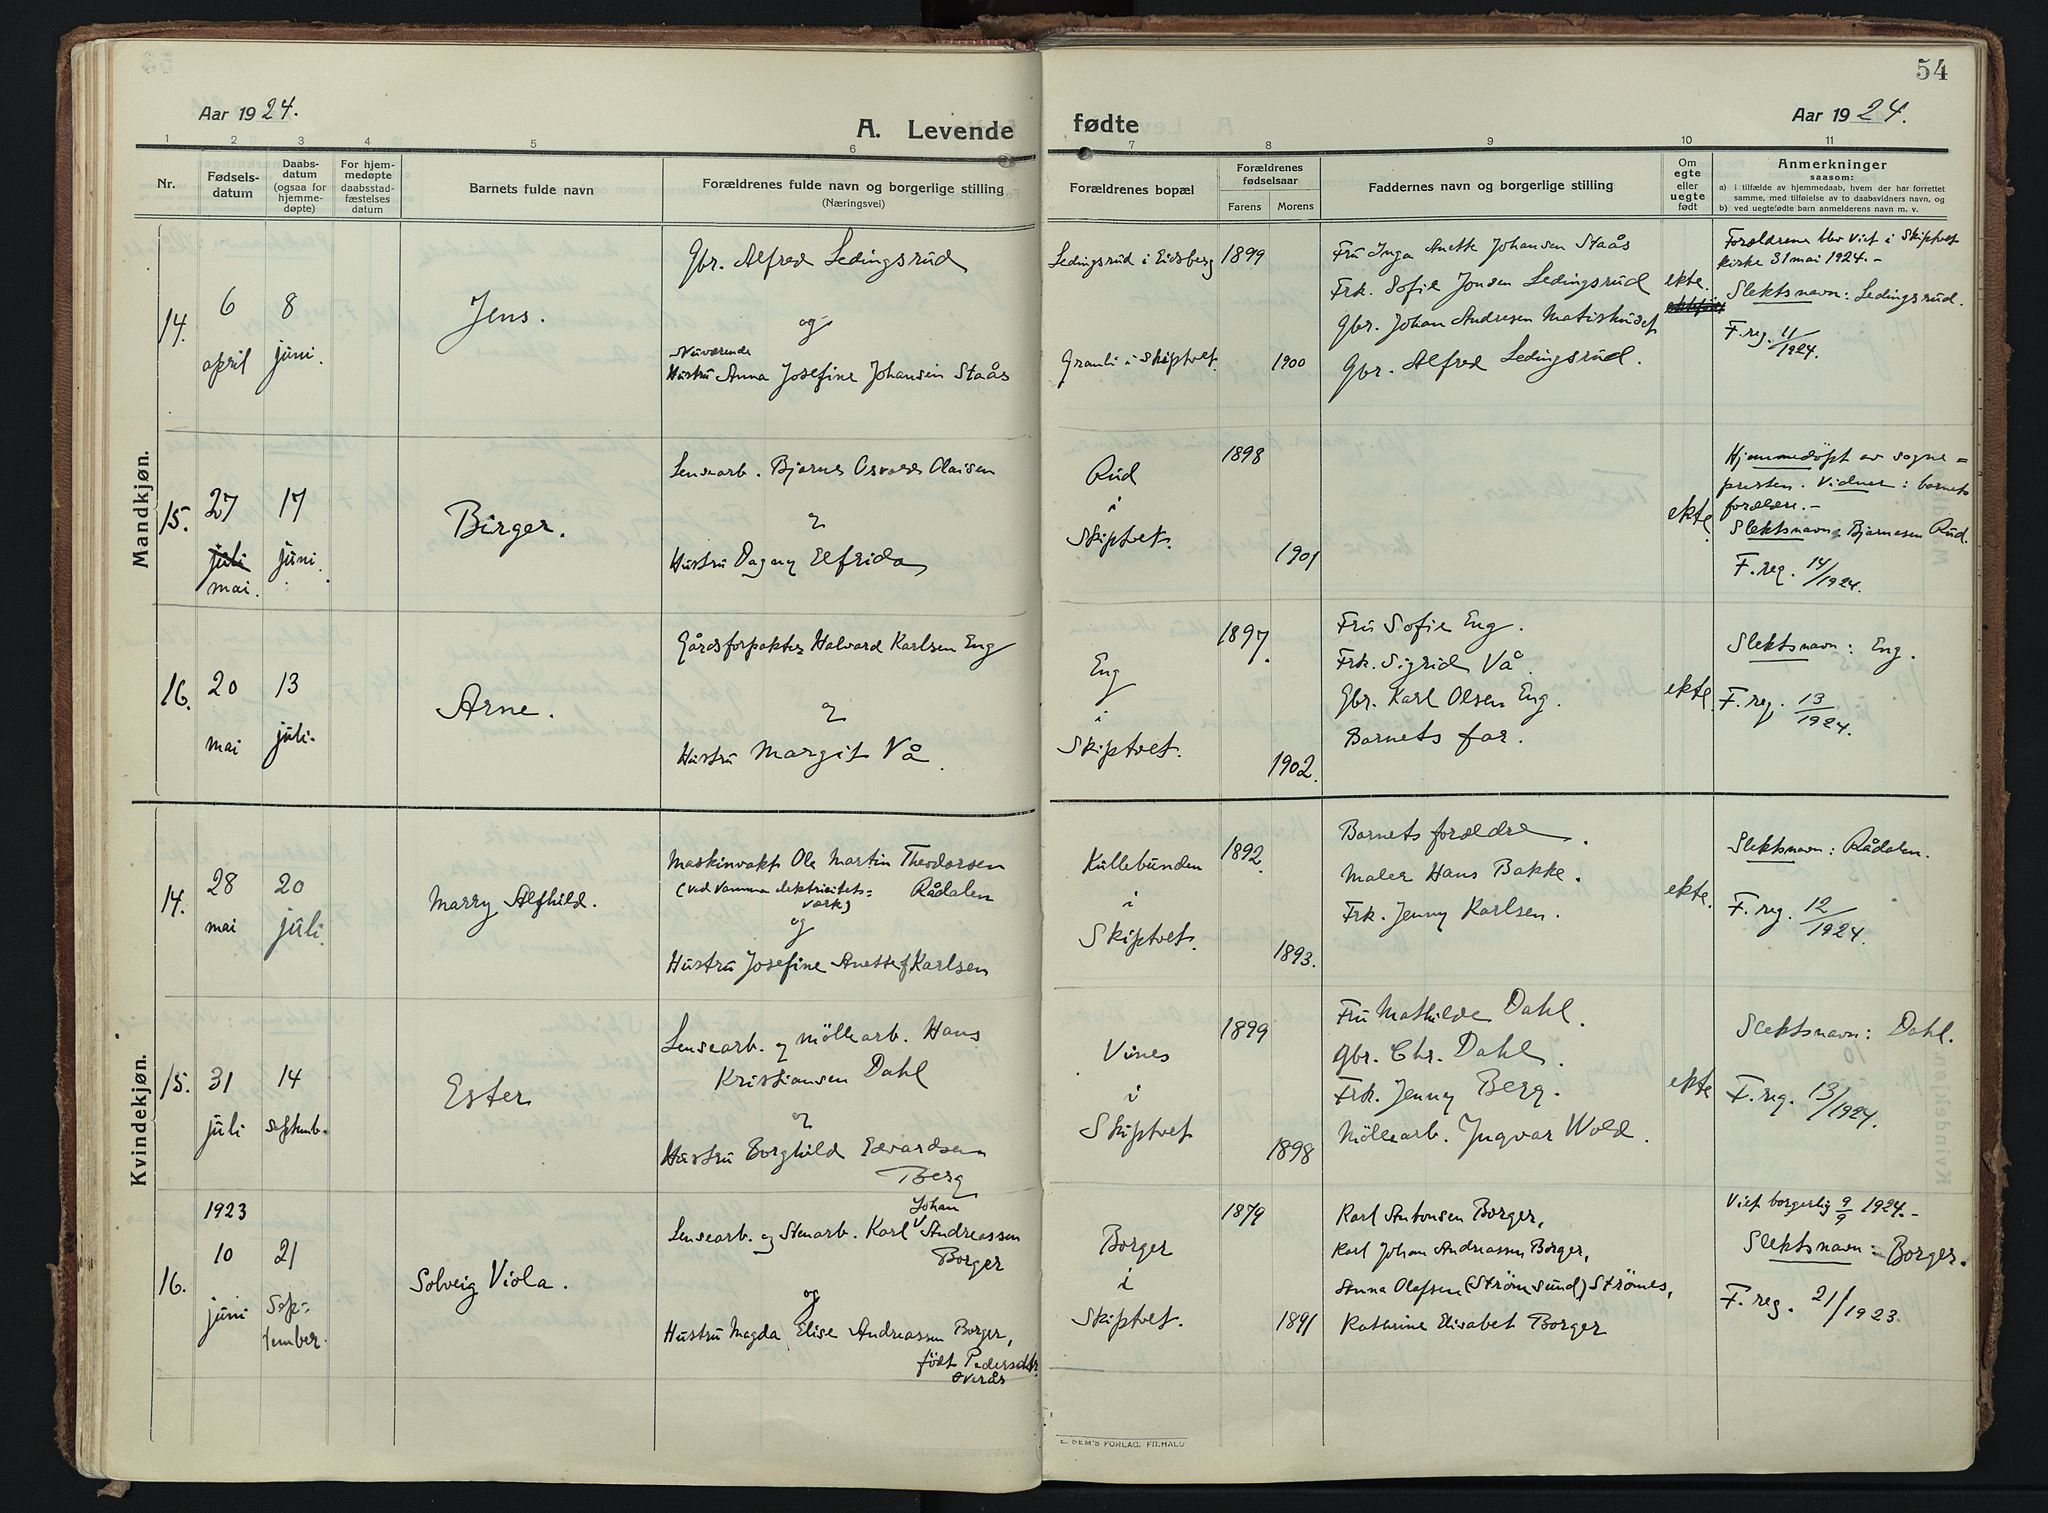 54
Aar 1924.
A. Levende
fødte
Aar 1924.
1 2 3 4 5 6 7 8 9 10 11
Nr.
Fødsels-
datum
Daabs-
datum
(ogsaa for
hjemme-
døpte)
For hjem-
medøpte
daabsstad-
fæstelses
datum
Barnets fulde navn
Forældrenes fulde navn og borgerlige stilling
(Næringsvei)
Forældrenes bopæl
Forældrenes
fødselsaar
Farens Morens
Faddernes navn og borgerlige stilling
Om
egte
eller
uegte
født
Anmerkninger
saasom:
a) i tilfælde av hjemmedaab, hvem der har forrettet
samme, med tilføielse av to daabsvidners navn, og
b) ved uegtefødte barn anmelderens navn m. v.
Mandkjøn.
14.
6
april
8
juni.
Jens.
Gbr. Alfred Ledingsrud
og
Nuværende
Hustru Anna Josefine Johansen Staås
Ledingsrud i Eidsberg
Gramli i Skiptvet.
1899
1900
Fru Inga Anette Johansen Staås
Frk. Sofie Jonsen Ledingsrud
Gbr. Johan Andresen
Gbr. Alfred Ledingsrud.
ekte.
Forældrene blev viet i Skiptvet
kirke 31 mai 1924.-
Slektsnavn: Ledingsrud.
F. reg. 11/1924.
15.
27
juli
mai.
17
juni.
Birger.
Lensearb. Bjarne Osvald Olaisen
og
Hustru Dagny Elfrida
Rud
i
Skiptvet.
1898
1901
ekte.
Hjemmedöpt av sogne=
presten. Vidner: barnets
forældre.-
Slektsnavn: Bjarnesen Rud.
F. reg. 14/1924.
16.
20
mai
13
juli.
Arne.
Gårdsforpakter Halvard Karlsen Eng
og
Hustru Margit Vå.
Eng
i
Skiptvet.
1897.
1902.
Fru Sofie Eng.
Frk. Sigrid Vå.
Gbr. Karl Olsen Eng.
Barnets far.
ekte.
Slektsnavn: Eng.
F. reg. 13/1924.
Kvindekjøn.
14.
28
mai
20
juli.
Marry Alfhild.
Maskinvakt Ole Martin Theodorsen
(ved Vamma elektricitets= Rådalen
værk)
og
Hustru Josefine Anette f Karlsen
Kullebunden
i
Skiptvet.
1892.
1893.
Barnets forældre.
Maler Hans Bakke.
Frk. Jenny Karlsen.
ekte.
Slektsnavn: Rådalen.
F. reg. 12/1924.
15.
31
juli
14
septemb.
Ester
Lensearb. og möllearb. Hans
Kristiansen Dahl
og
Hustru Borghild Edvardsen
Berg
Vines
i
Skiptvet
1899
1898
Fru Mathilde Dahl.
Gbr. Chr. Dahl.
Frk. Jenny Berg.
Möllearb. Ingvar Wold.
ekte
Slektsnavn: Dahl.
F. reg. 13/1924.
16.
1923
10
juni
21
Sep=
tember.
Solveig Viola.
Johan
Lensearb. og Stenarb. Karl Andreassen
Borger
og
Hustru Magda Elise Andreassen Borger,
født Pedersdtr.
Overås
Borger
i
Skiptvet.
1879
1891
Karl Antonsen Borger,
Karl Johan Andreassen Borger,
Anna Olafsen (Strömsund) Strömes,
Kathrine Elisabet Borger
Viet borgerlig 9/9 1924.-
Slektsnavn: Borger.
F. reg. 21/1923.
E. SEM'S FORLAG, FR.HALD